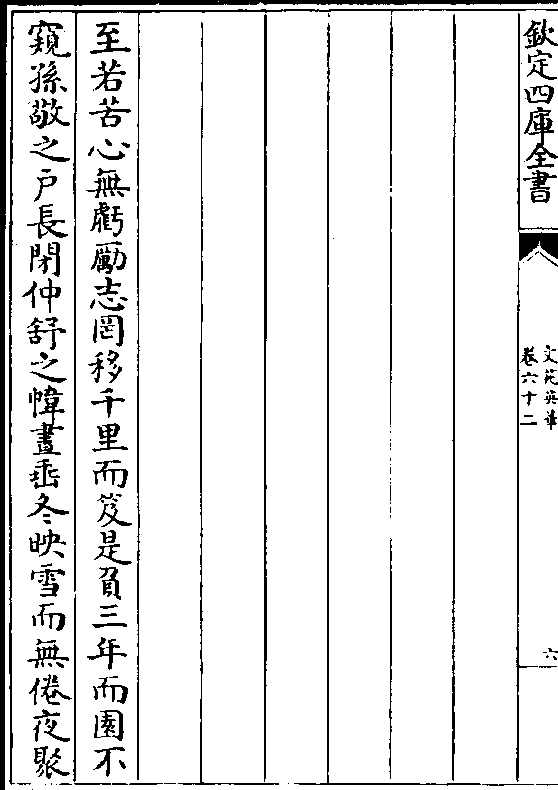 欽定四庫全書
文苑英華
卷六十二
六
至若苦心無虧勵志罔移千里而笈是負三年而園不
窺孫敬之戸長閉仲舒之幃晝垂冬映雪而無倦夜聚